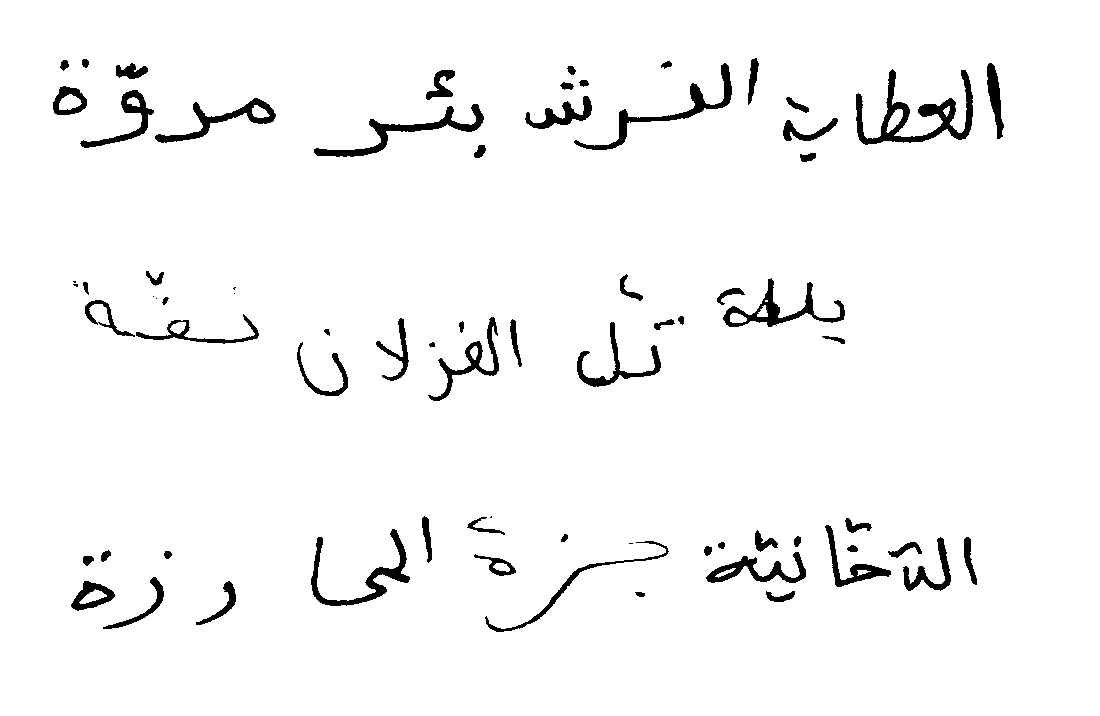 العطاية الفرش بئر مروّة
يلطة تل الغزلان نفّة
الدخّانيّة جزة المحارزة